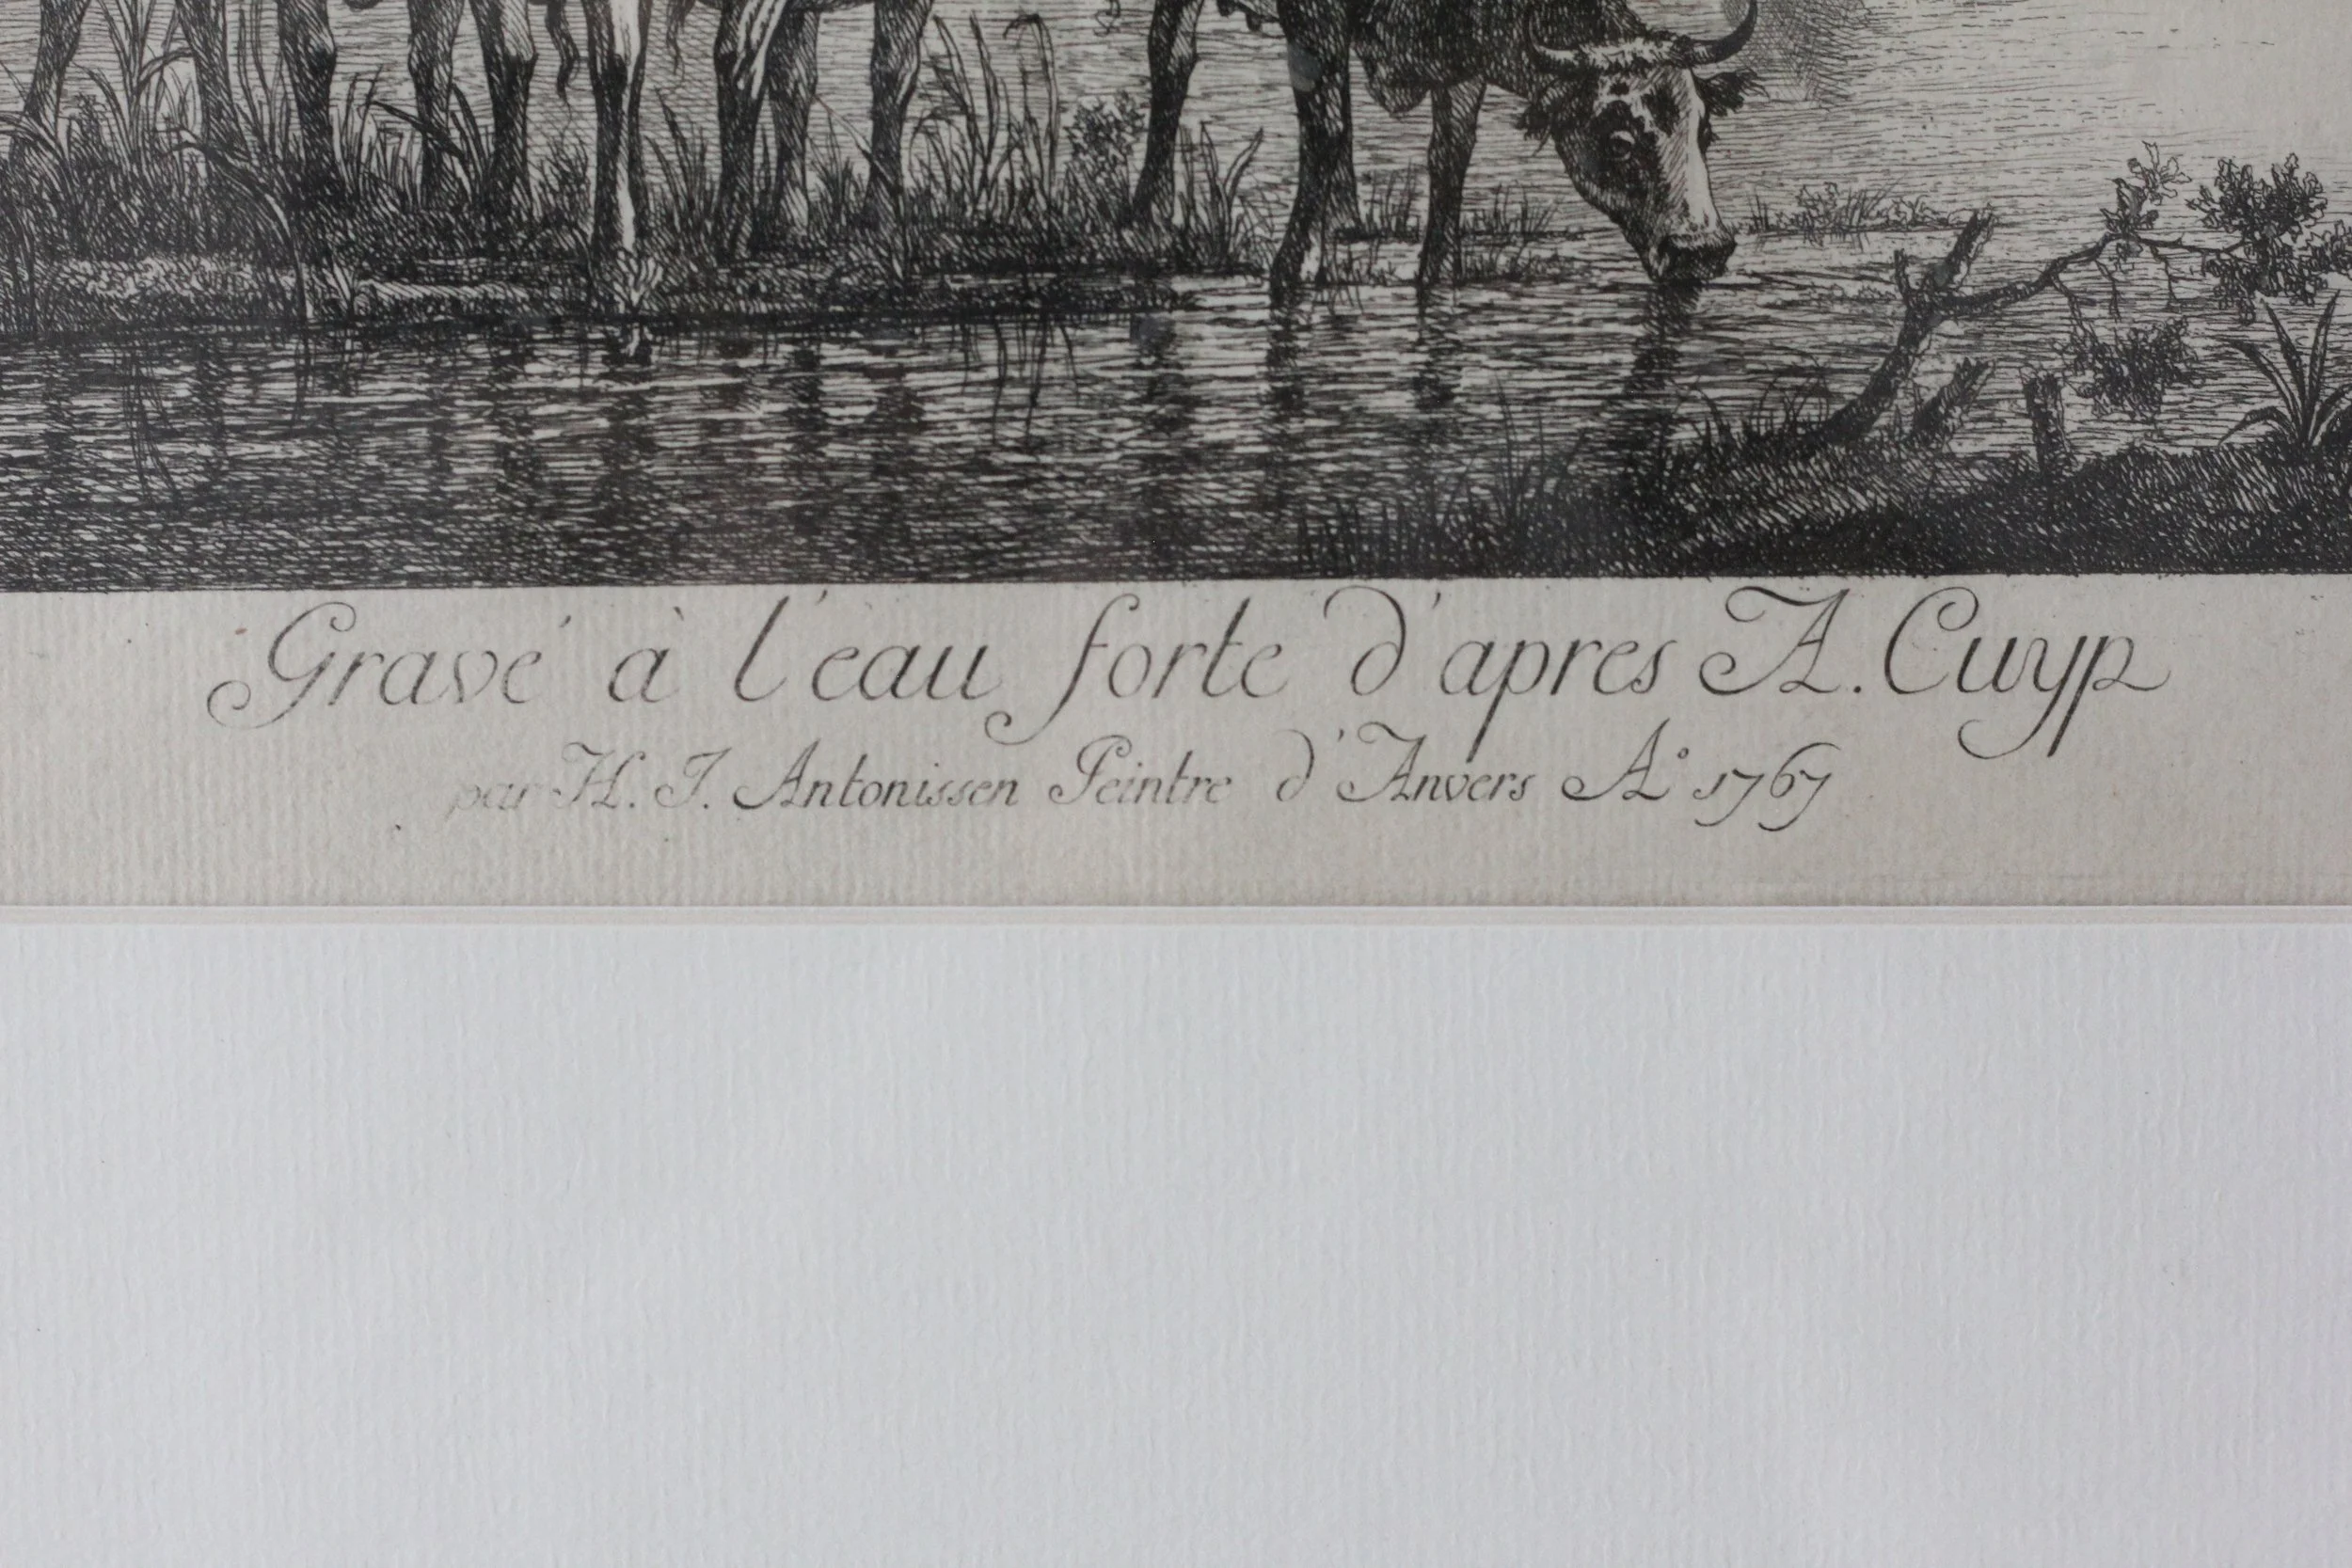 Gravé à l'eau forte d'apres A. Cuyp
par H. J. Antonissen Peintre d'Anvers A° 1767